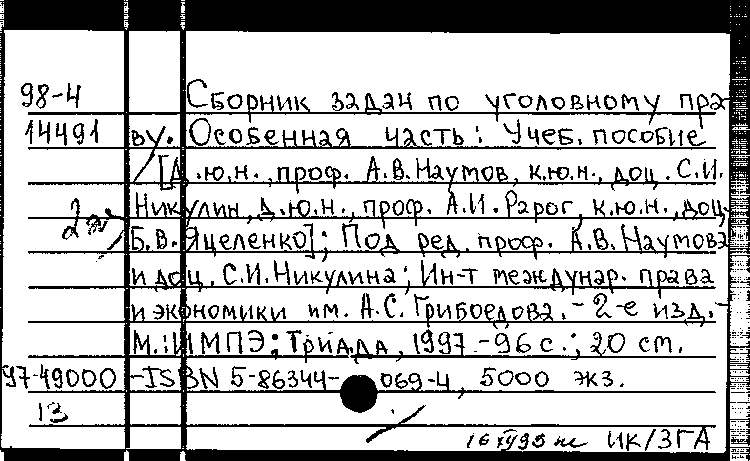 98-4 Сборник задач по уголовному пра-
14491 ву. Особенная часть: Учеб. пособие
/ [Д.ю.н., проф. А.В.Наумов, к.ю.н., доц. С.И.
Никулин, д.ю.н., проф. А.И.Рарог, к.ю.н., доц.
Б.В.Яцеленко]; Под ред. проф. А.В.Наумова
и доц. С.И.Никулина; Ин-т междунар. права
и экономики им. А.С.Грибоедова. - 2-е изд. -
М.: ИМПЭ: Триада, 1997. - 96 с.; 20 см.
97-49000 - ISBN 5-86344-069-4, 5000 экз.
13
ИК/ЗГА